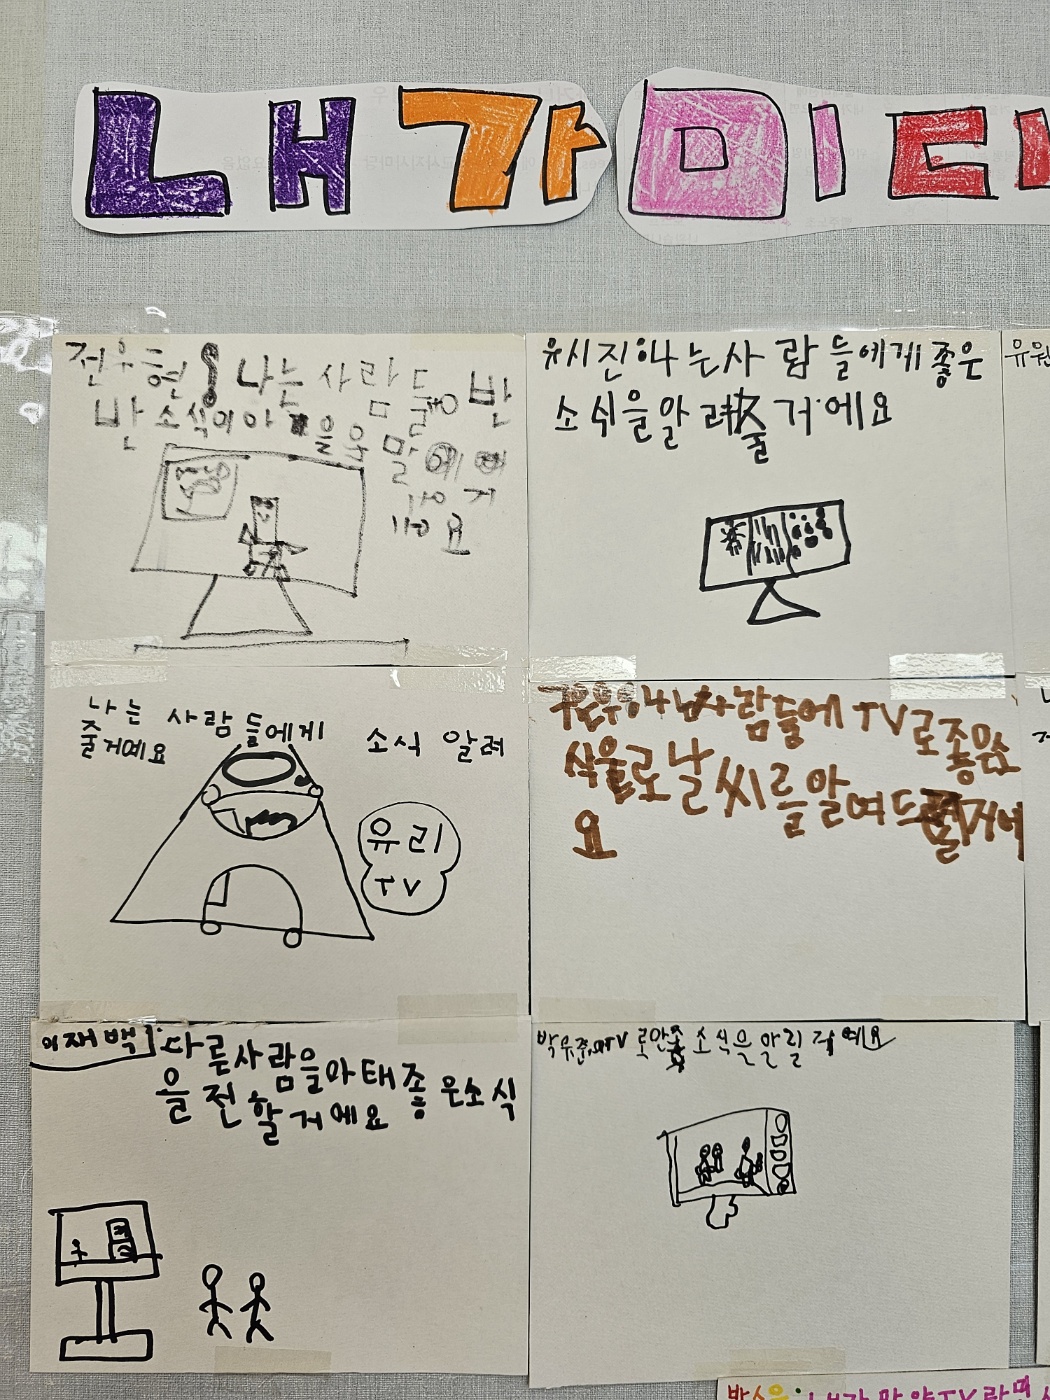 내가 미디
전우현 나는 사람들 반
반 소식
말
거
요
유시진 나는 사람들에게 좋은
소식을 알려줄 거에요
유원
나는 사람들에게 소식 알려
줄거예요
유리
TV
사람들에 TV로 좋은소
식을로 날씨를 알여드릴거에
요
이재백 다른사람을아태좋은소식
을 전할거에요
박우준 TV로 소식을 알릴 거예요
내가 만약TV라면